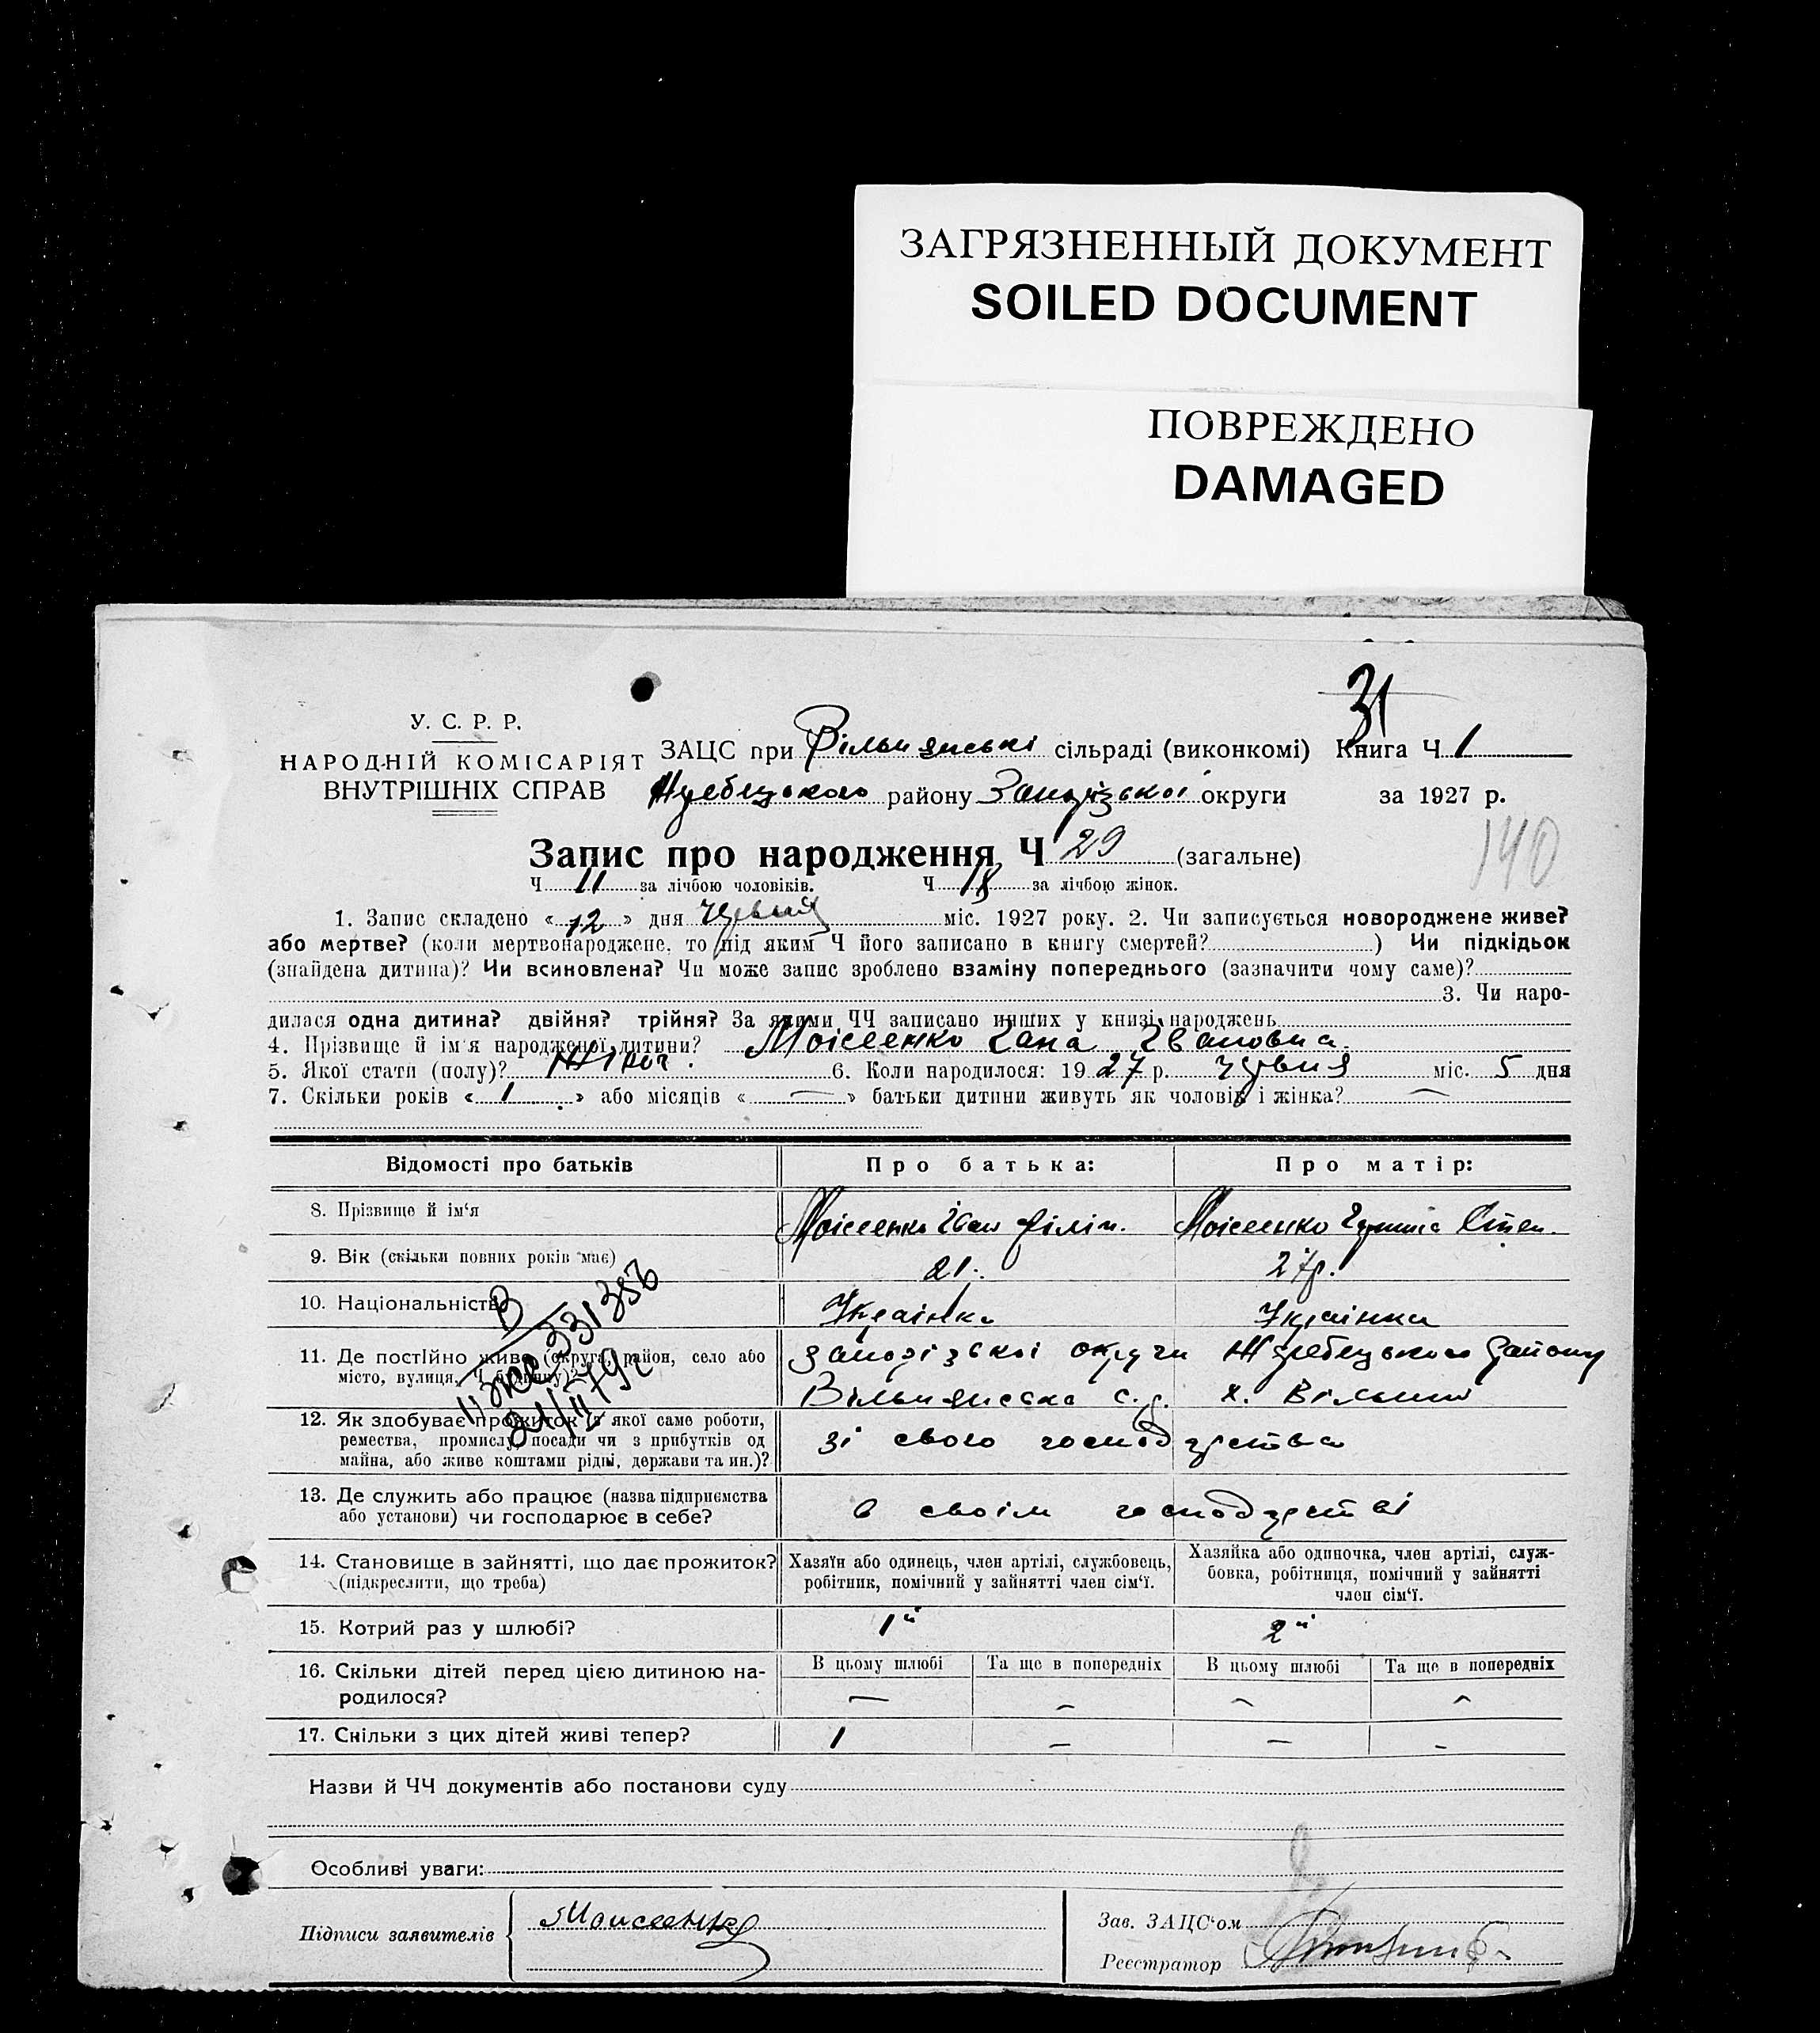 ЗАГРЯЗНЕННЫЙ ДОКУМЕНТ
SOILED DOCUMENT
ПОВРЕЖДЕНО
DAMAGED
31
У. С. Р. Р.
НАРОДНІЙ КОМІСАРІЯТ
ВНУТРІШНІХ СПРАВ
ЗАЦС при Вільнянські сільраді (виконкомі) Книга Ч 1
району Запорізької округи за 1927 р.
140
Запис про народження Ч 29 (загальне)
Ч 11 за лічбою чоловіків. Ч 18 за лічбою жінок.
1. Запис складено « 12 » дня Червня міс. 1927 року. 2. Чи записується новороджене живе?
або мертве? (коли мертвонароджене, то під яким Ч його записано в книгу смертей? ) Чи підкідьок
(знайдена дитина)? Чи всиновлена? Чи може запис зроблено взаміну попереднього (зазначити чому саме)?
3. Чи наро-
дилася одна дитина? двійня? трійня? За якими ЧЧ записано инших у книзі народжень
4. Прізвище й ім'я народженої дитини? Моісеенко Івановна.
5. Якої стати (полу)? Жіноч. 6. Коли народилося: 1927 р. червня міс. 5 дня
7. Скільки років « 1 » або місяців « — » батьки дитини живуть як чоловік і жінка? —
Відомості про батьків Про батька: Про матір:
8. Прізвище й ім'я Моісеенко Іван Філіп. Моісеенко Степ.
9. Вік (скільки повних років має) 21. 27р.
10. Національність Українка Українка
11. Де постійно живе (округа, район, село або Запорізької округи Жеребецького району
місто, вулиця, Ч будинку)? Вільнянська с.р. х.
331356
12. Як здобуває прожиток (з якої саме роботи,
ремества, промислу, посади чи з прибутків од зі свого господарства
майна, або живе коштами рідні, держави та ин.)?
13. Де служить або працює (назва підприємства
або установи) чи господарює в себе? в своїм господарстві
14. Становище в зайнятті, що дає прожиток? Хазяїн або одинець, член артілі, службовець, Хазяйка або одиночка, член артілі, служ-
(підкреслити, що треба) робітник, помічний у зайнятті член сім'ї. бовка, робітниця, помічний у зайнятті
член сім'ї.
15. Котрий раз у шлюбі? 1й 2й
16. Скільки дітей перед цією дитиною на- В цьому шлюбі Та ще в попередніх В цьому шлюбі Та ще в попередніх
родилося? — — — —
17. Скільки з цих дітей живі тепер? 1 — — —
Назви й ЧЧ документів або постанови суду
Особливі уваги:
Підписи заявителів Моисеенко
Зав. ЗАЦС'ом
Реєстратор